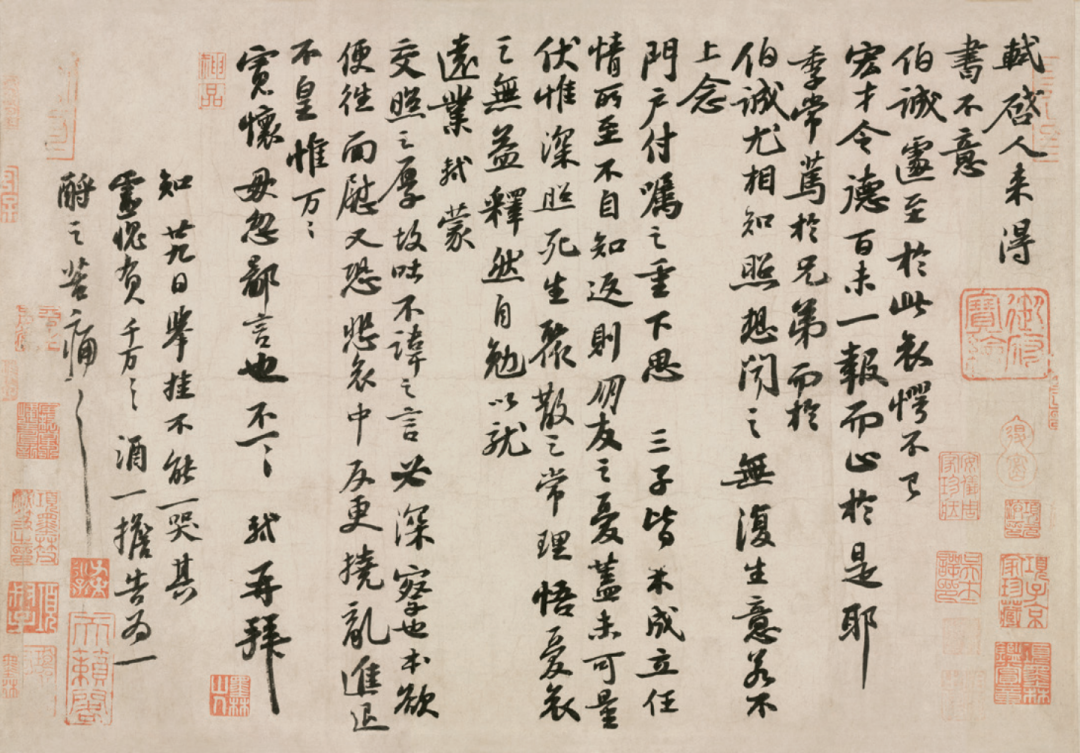 軾啓人来得
書不意
伯誠遽至於此哀愕不已
宏才令德百未一報而止於是耶
季常篤於兄弟而於
伯誠尤相知照想聞之無復生意若不
上念
門户付囑之重下思三子皆未成立任
情所至不自知返則朋友之憂蓋未可量
伏惟深照死生聚散之常理悟憂哀
之無益釋然自勉以就
遠業軾蒙
交照之厚故吐不諱之言必深察也本欲
便往面慰又恐悲哀中反更撓亂進退
不皇惟万〻
寛懷毋忽鄙言也不一〻軾再拜
知廿九日舉挂不能一哭其
靈愧負千万〻酒一擔告为一
酹之苦痛〻
御府寶繪
項子京家珍藏
安儀周家珍藏
神品
墨林山人
天籟閣